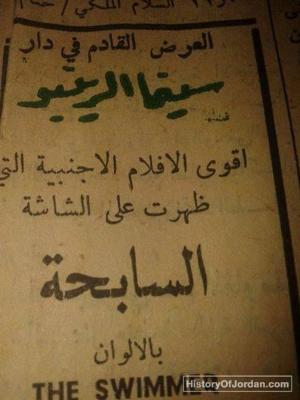 السلام الملكي /
العرض القادم في دار
سينما الريفيو
اقوى الافلام الاجنبية التي
ظهرت على الشاشة
السابحة
بالالوان
THE SWIMMER
HistoryOfJordan.com